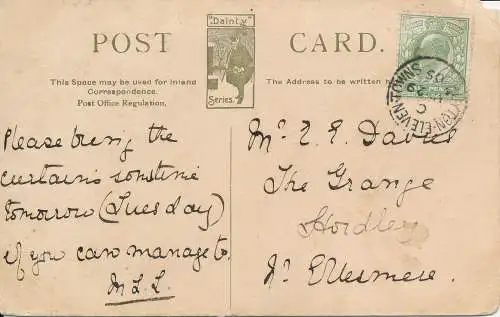 POST CARD.
"Dainty"
Series.
This Space may be used for Inland
Correspondence.
Post Office Regulation.
The Address to be written h
Please bring the
curtains sometime
tomorrow (Tuesday)
if you can manage to.
M.L.L.
Mr E. E. Davies
The Grange
Hordley
Nr Ellesmere
YTON-ELEVEN-TOWNS